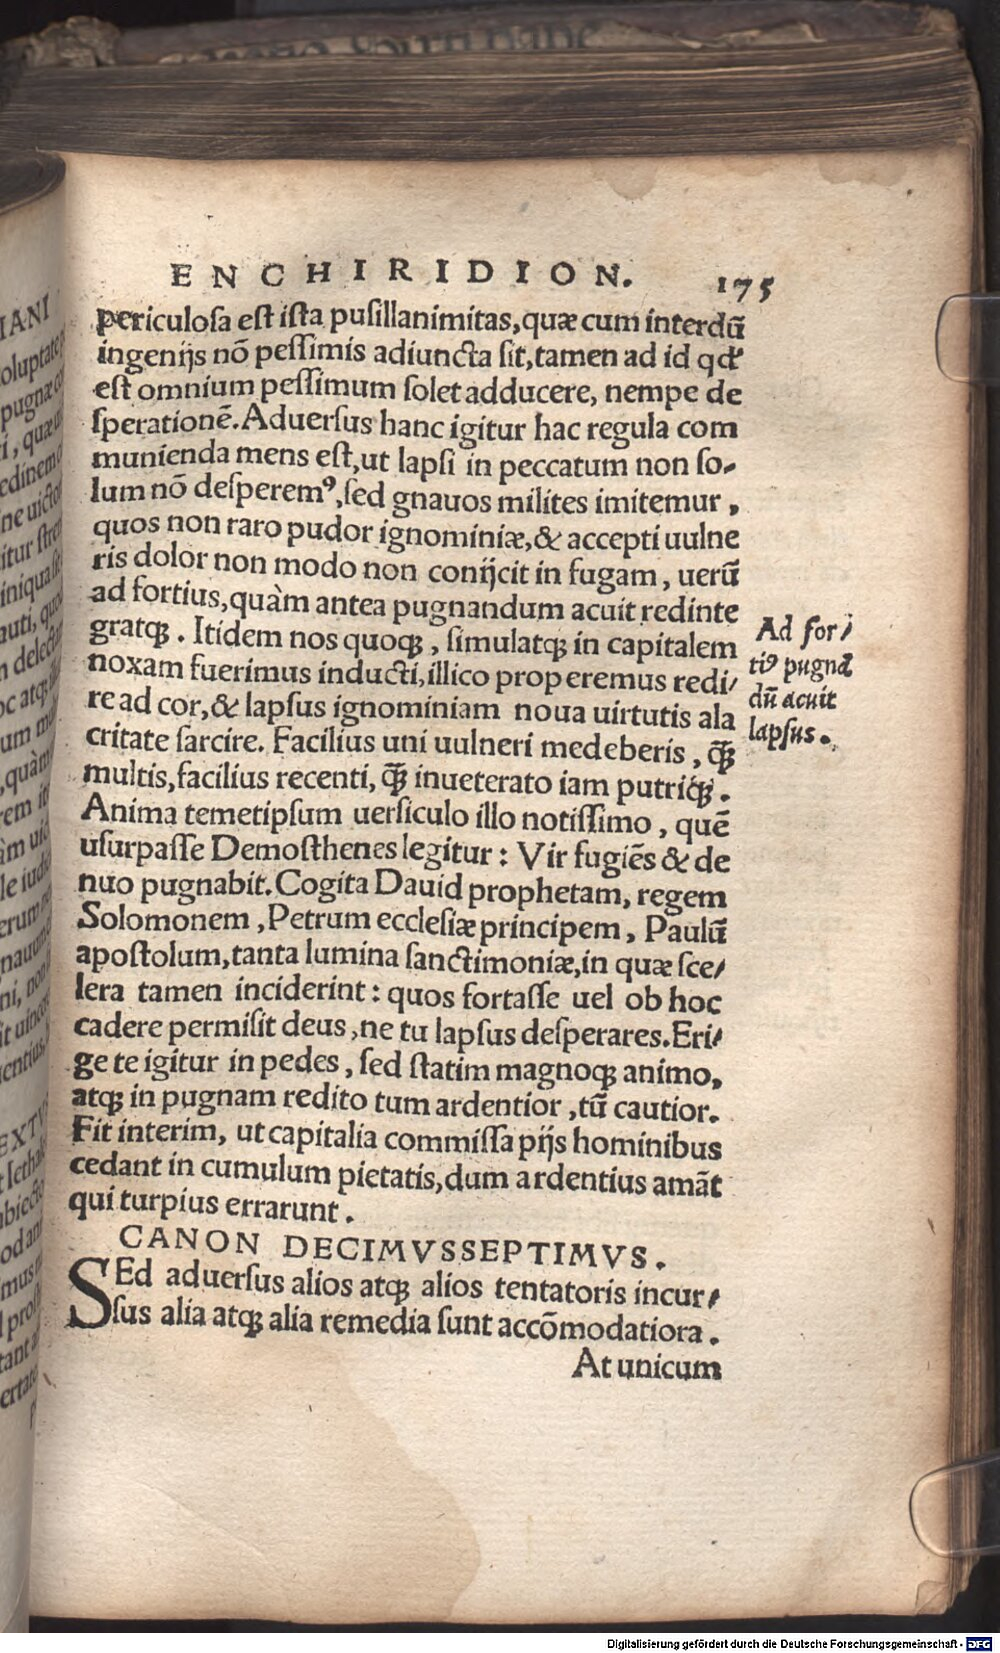 ENCHIRIDION. 175
periculosa est ista pusillanimitas, quæ cum interdũ
ingenijs nõ pessimis adiuncta sit, tamen ad id qđ
est omnium pessimum solet adducere, nempe de
sperationẽ. Aduersus hanc igitur hac regula com
munienda mens est, ut lapsi in peccatum non so-
lum nõ desperemꝰ, sed gnauos milites imitemur,
quos non raro pudor ignominiæ, & accepti uulne
ris dolor non modo non conijcit in fugam, uerũ
ad fortius, quàm antea pugnandum acuit redinte
gratqꝫ. Itidem nos quoqꝫ, simulatqꝫ in capitalem
noxam fuerimus inducti, illico properemus redi/
re ad cor, & lapsus ignominiam noua uirtutis ala
critate sarcire. Facilius uni uulneri medeberis, q̃ꝫ
multis, facilius recenti, q̃ꝫ inueterato iam putriqꝫ.
Anima temetipsum uersiculo illo notissimo, quẽ
usurpasse Demosthenes legitur: Vir fugiẽs & de
nuo pugnabit. Cogita Dauid prophetam, regem
Solomonem, Petrum ecclesiæ principem, Paulũ
apostolum, tanta lumina sanctimoniæ, in quæ sce/
lera tamen inciderint: quos fortasse uel ob hoc
cadere permisit deus, ne tu lapsus desperares. Eri/
ge te igitur in pedes, sed statim magnoqꝫ animo,
atqꝫ in pugnam redito tum ardentior, tũ cautior.
Fit interim, ut capitalia commissa pijs hominibus
cedant in cumulum pietatis, dum ardentius amãt
qui turpius errarunt.
CANON DECIMVSSEPTIMVS.
SEd aduersus alios atqꝫ alios tentatoris incur/
sus alia atqꝫ alia remedia sunt accõmodatiora.
At unicum
Ad for/
tiꝰ pugnã
dũ acuit
lapsus.
Digitalisierung gefördert durch die Deutsche Forschungsgemeinschaft - DFG